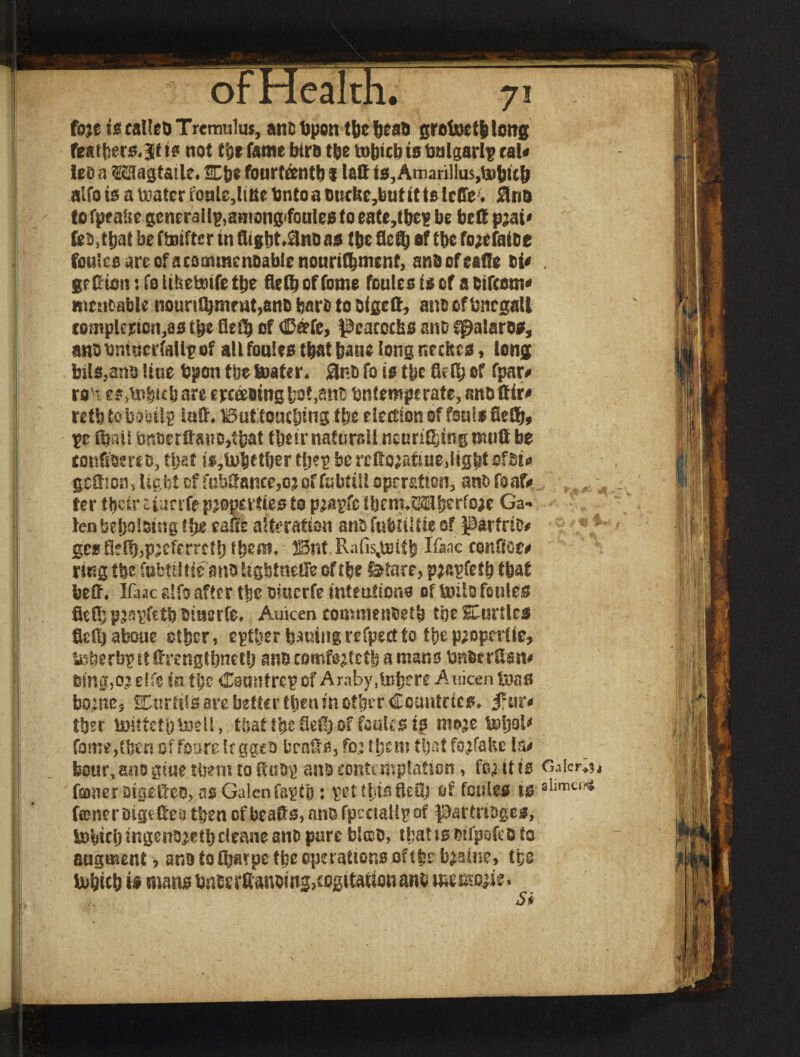 of Health. 71
fore is called Tremulus, and vpon the head groweth long
feathers. It is not the same bird the which is vulgarly cal-
led a Wagtaile. The fourtéenth & last is, Amarillus, which
also is a water foule, like vnto a ducke, but it is lesse. And
to speake generally, among foules to eate, they be best prai-
sed, that be swifter in flight. And as the flesh of the foresaide
foules are of a commendable nourishment, and of easie di-
gestion: so likewise the flesh of some foules is of a discom-
mendable nourishment, and hard to digest, and of vnegall
complexion, as the flesh of Géese, Peacockes and Malards,
and vniuersally of all foules that haue long neckes, long
bils, and liue vpon the water. And so is the flesh of spar-
rowes, which are excéeding hot, and vntemperate, and stir-
reth to bodily lust. But touching the election of fouls flesh,
ye shall vnderstand, that their naturall nourishing must be
considered, that is, whether they be restoratiue, light of di-
gestion, light of substance, or of subtill operation, and so af-
ter their diuerse properties to prayse them. Wherfore Ga-
len beholding the easie alteration and subtiltie of Partrid-
ges flesh, preferreth them. But Rasis, with Isaac conside-
ring the subtiltie and lightnesse of the Stare, prayseth that
best. Isaac also after the diuerse intentions of wild foules
flesh prayseth diuerse. Auicen commendeth the Turtles
flesh aboue other, eyther hauing respect to the propertie,
wherby it strengthneth and comforteth a mans vnderstan-
ding, or else in the Countrey of Araby, where Auicen was
borne, Turtils are better then in other Countries. Fur-
ther witteth well, that the flesh of foules is more whol-
some, then of foure legged beasts, for them that forsake la-
bour, and giue them to study and contemplation, for it is Galen. 3.
sooner digested, as Galen sayth: yet this flesh of foules is alimen.
sooner digested then of beasts, and specially of Partridges,
which ingendreth cleane and pure blood, that is disposed to
augment, and to sharpe the operations of the braine, the
which is mans vnderstanding, cogitation and memorie.
Si